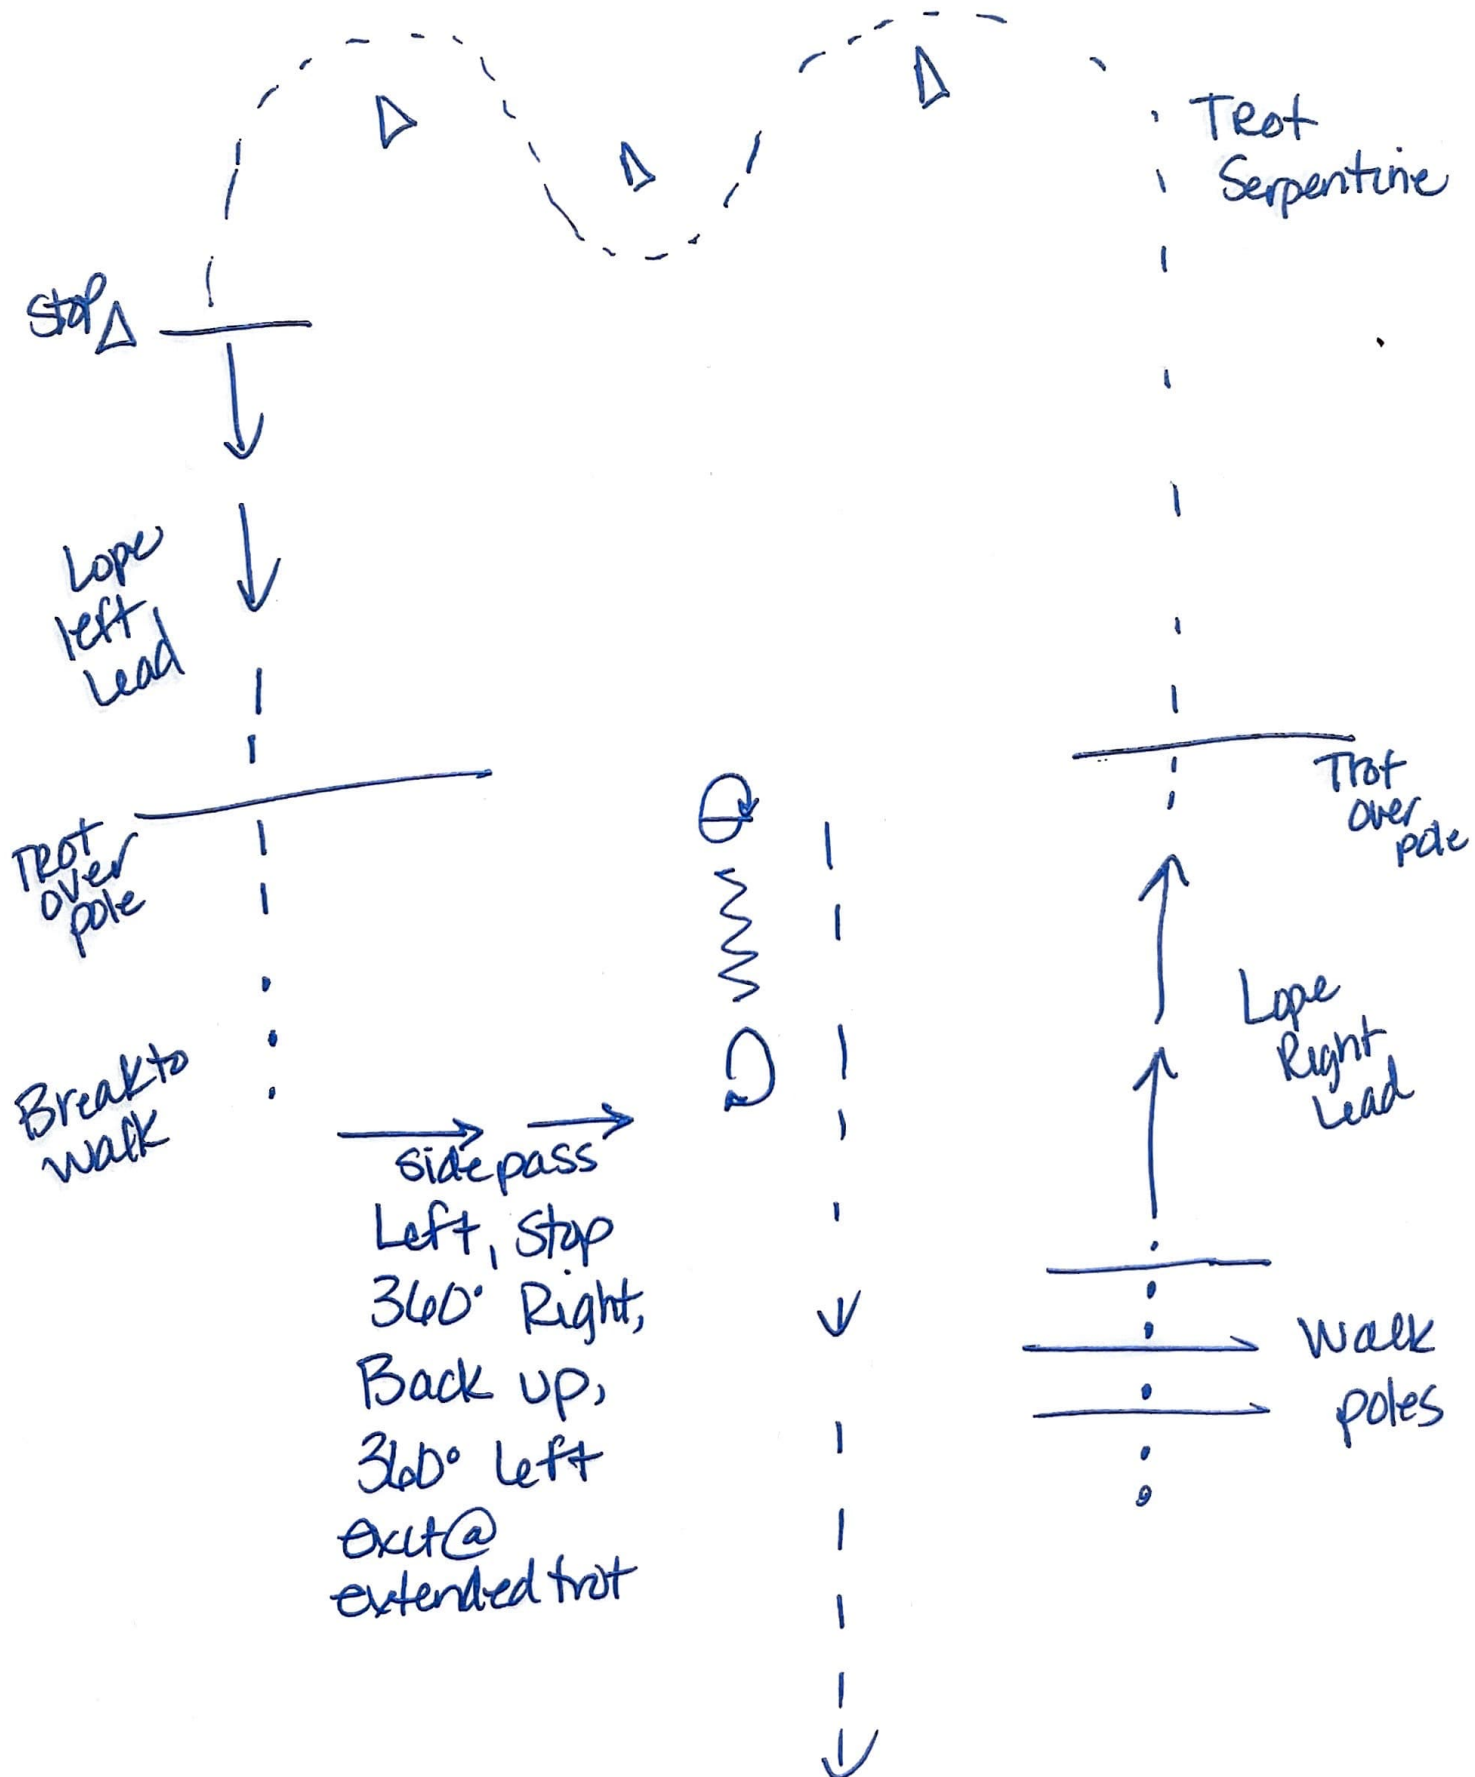 TRot
Serpentine
Stop
Lope
left
Lead
Trot
over
pole
TROT
over
pole
Lope
Right
Lead
Break to
walk
side pass
Left, Stop
360° Right,
Back up,
360° Left
exit @
extended trot
Walk
poles